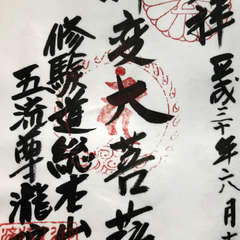 祥 平成二十年六月
変大菩薩
修験道総本山
五流尊瀧